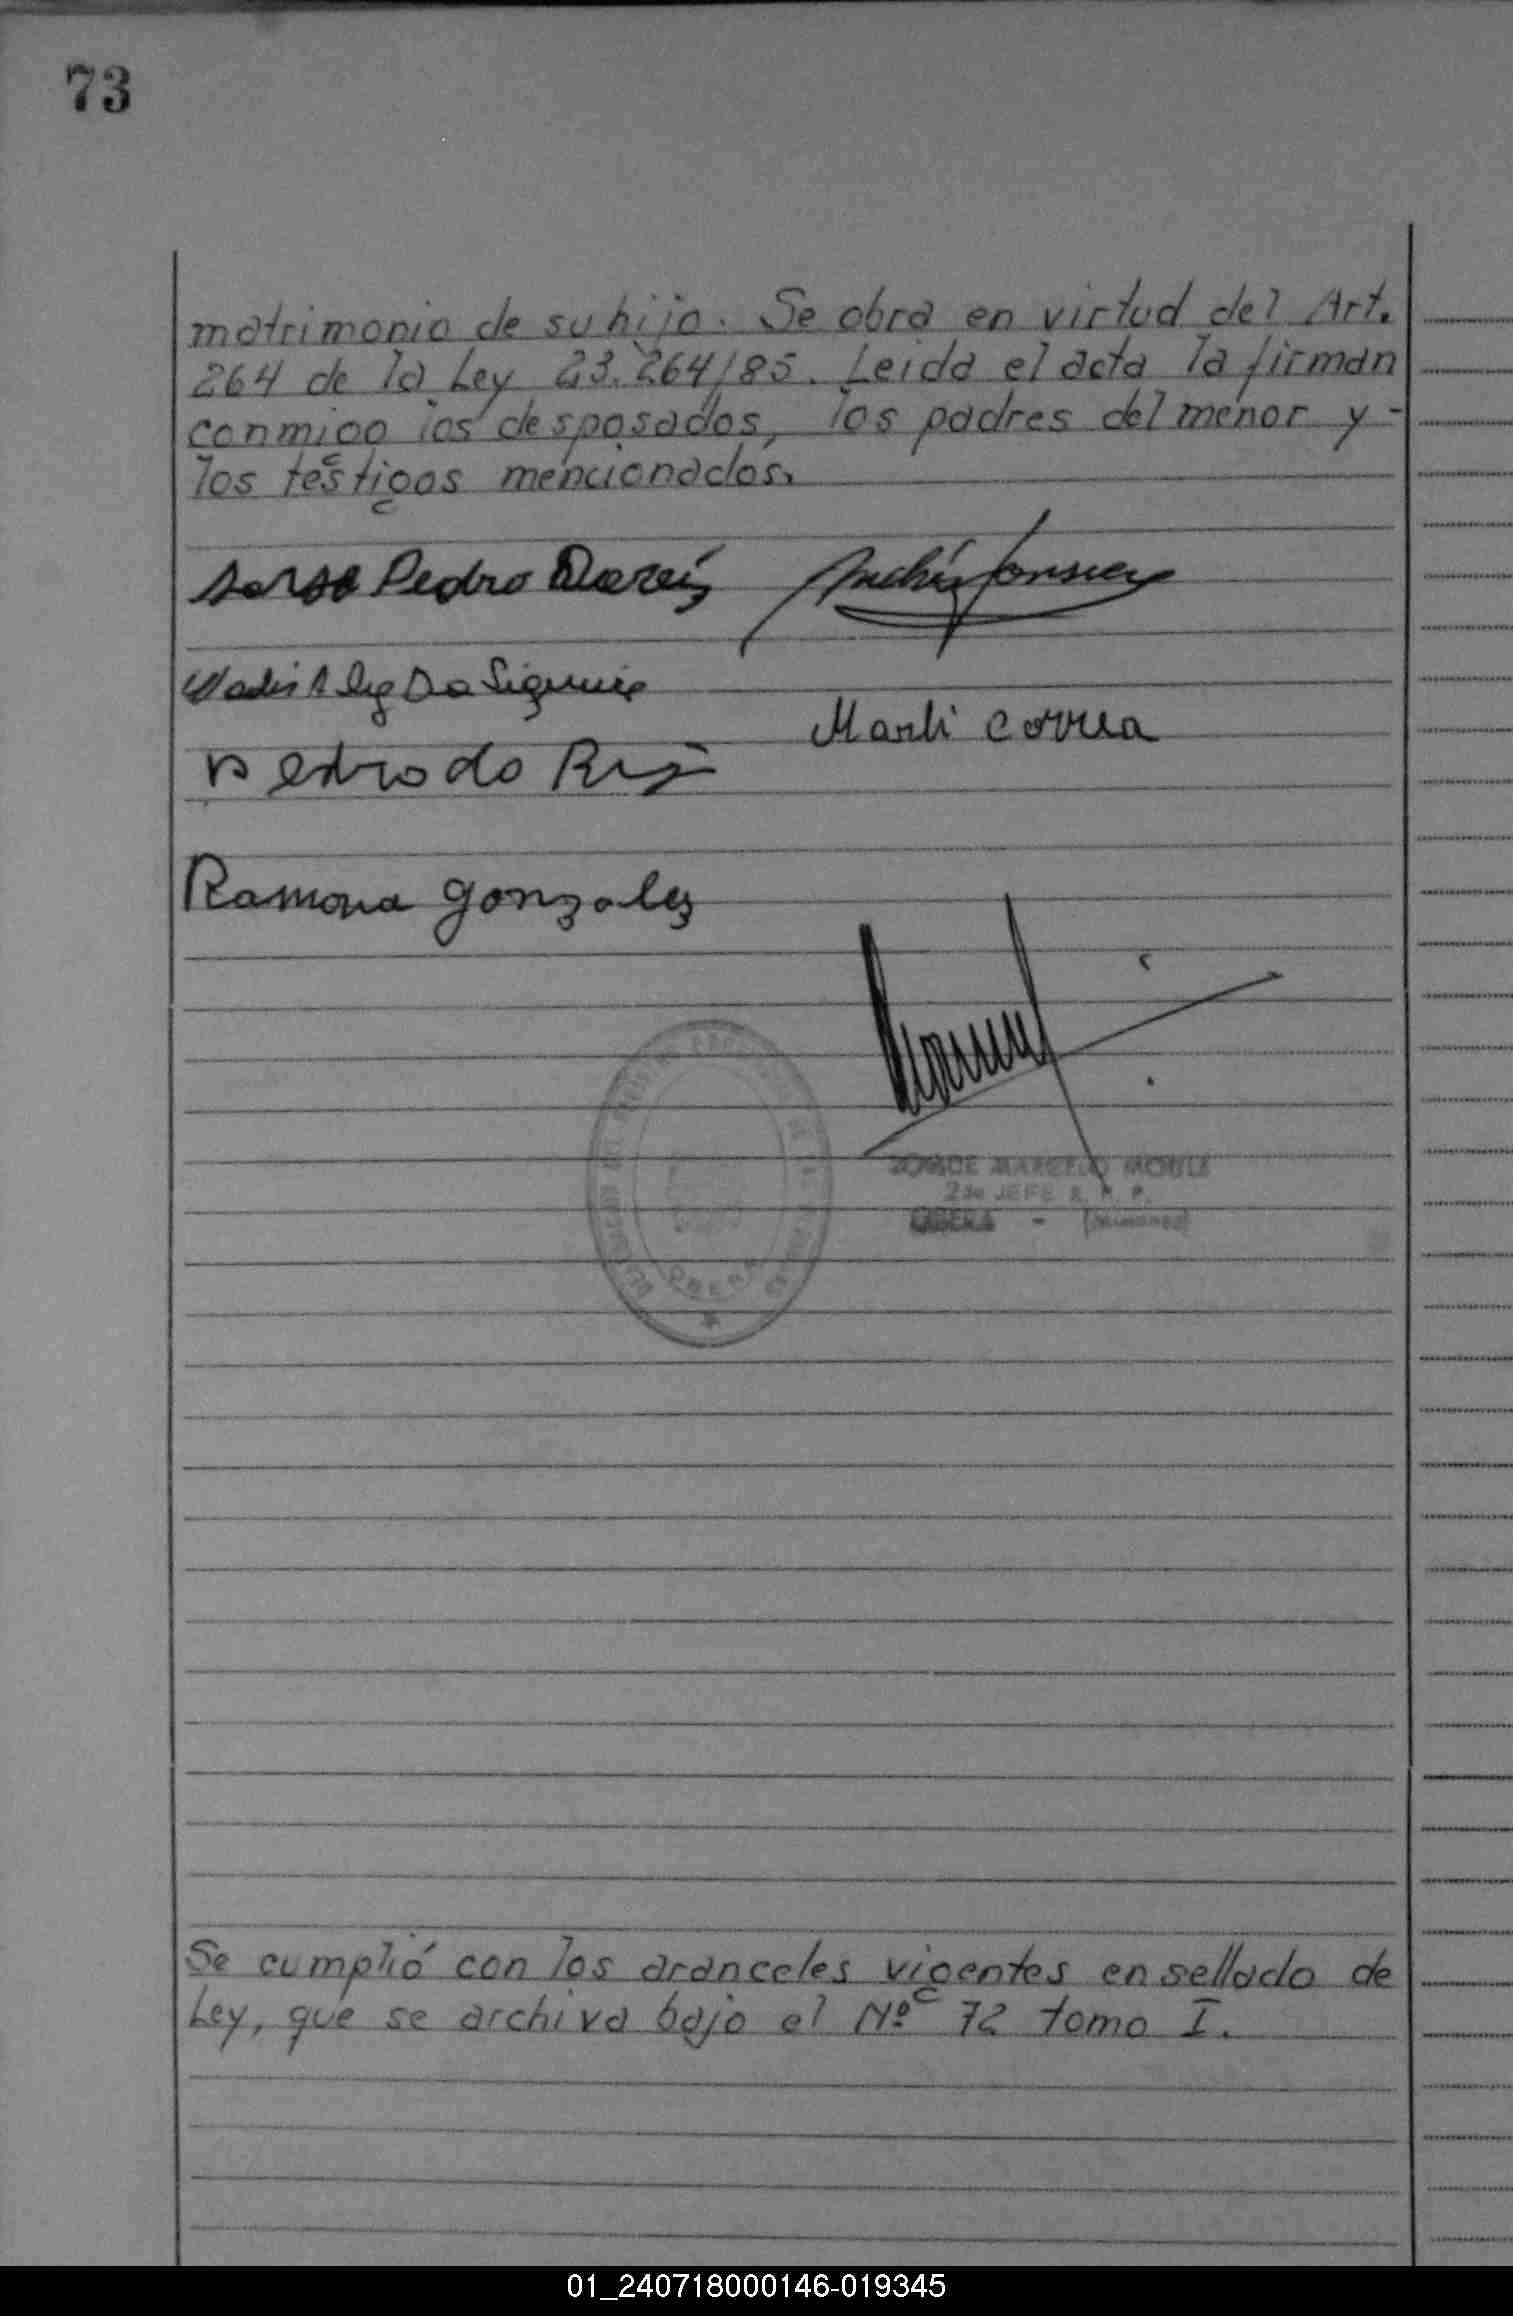 73
matrimonio de su hijo. Se obra en virtud del Art.
264 de la Ley 23.264/85. Leida el acta la firman
conmigo los desposados, los padres del menor y -
los testigos mencionados.
Pedro
Marli Correa
Pedro do
Ramona Gonzalez
MARCELO
2do JEFE R. P. P.
OBERA - (Misiones)
OBERA
Se cumplió con los aranceles vigentes en sellado de
Ley, que se archiva bajo el Nº 72 tomo I.
01_240718000146-019345